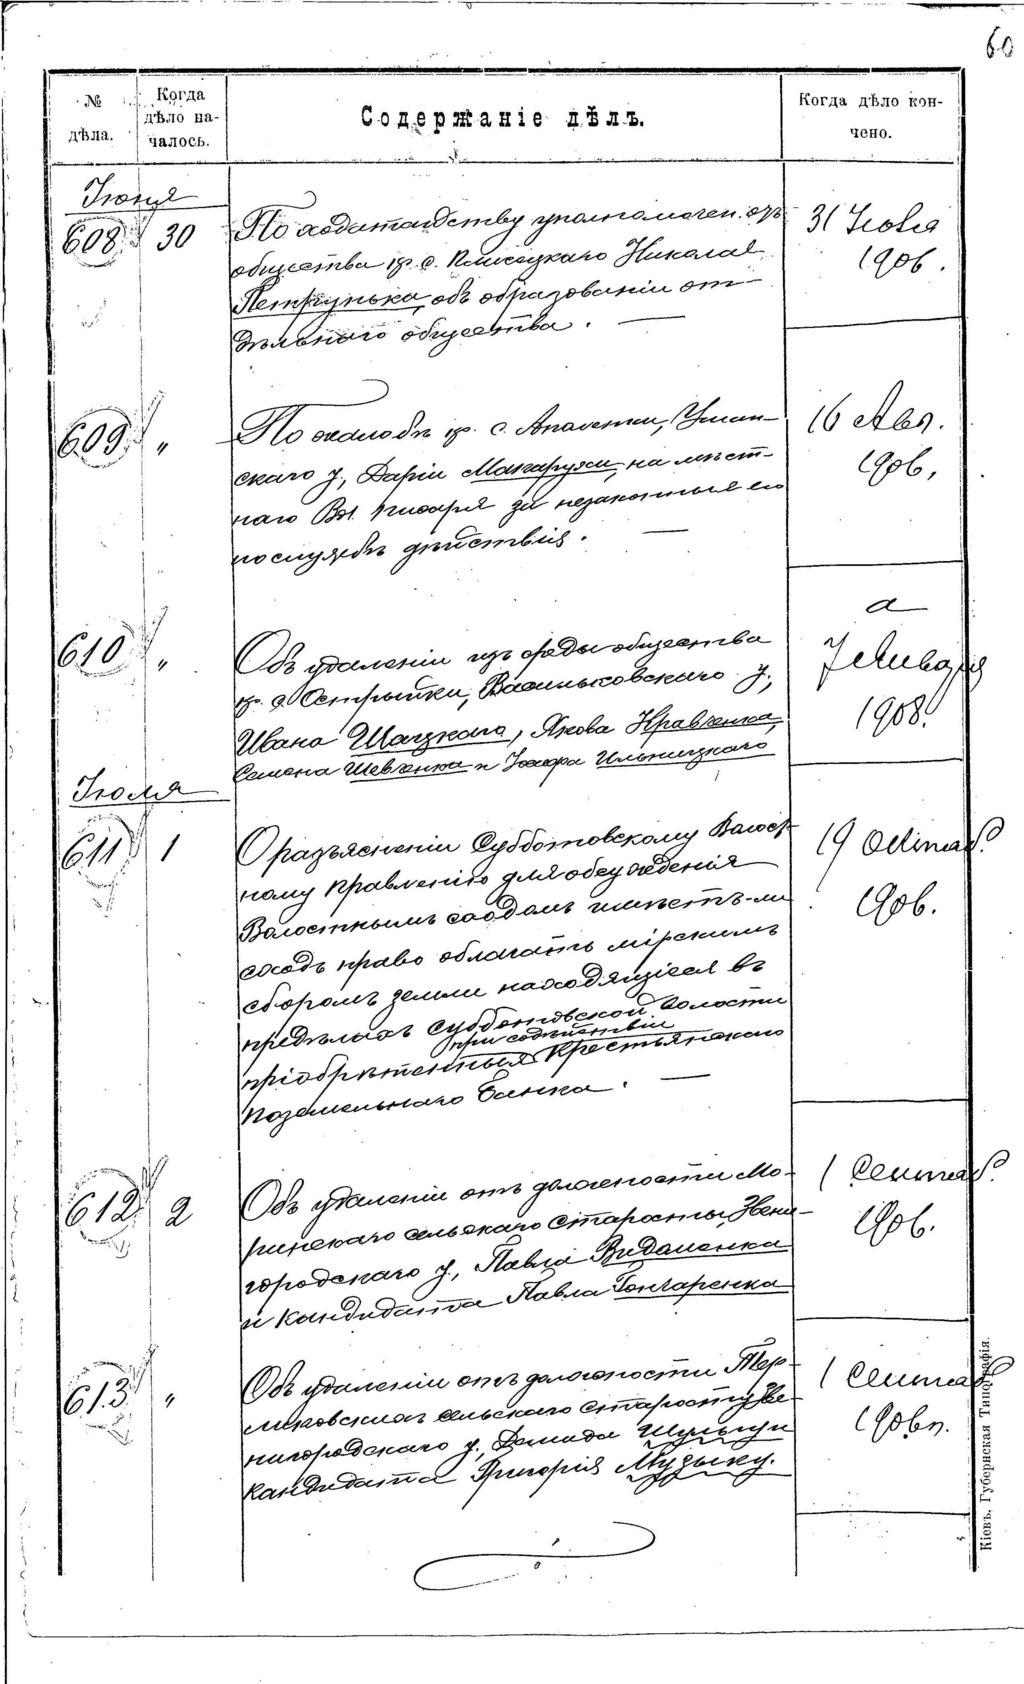 60
№ дѣла.
Когда дѣло началось.
Содержаніе дѣлъ.
Когда дѣло кончено.
Іюня
608 30
По ходатайству уполномочен. отъ
общества кр. с. Николая
Петрунька, объ образованіи от-
дѣльнаго общества. —
31 Іюля
1906.
609 "
По жалобѣ кр. с. Уман-
скаго у., Даріи Макарухи, на мѣст-
наго Вол. писаря за незаконныя его
по службѣ дѣйствія. —
16 Авг.
1906.
610 "
Объ удаленіи изъ среды общества
кр. с. Острыйки, Васильковскаго у.,
Ивана Шацкаго, Якова Кравченка,
Семена Шевченка и Ильницкаго
7 Января
1908.
Іюля
611 1
О разъясненіи Субботовскому Волост-
ному Правленію для обсужденія
Волостнымъ сходомъ имѣетъ-ли
сходъ право облагать мірскимъ
сборомъ земли находящіеся въ
предѣлахъ Субботовской волости
при содѣйствіи
пріобрѣтенныя Крестьянскаго
Поземельнаго Банка. —
19 Октяб.
1906.
612 2
Объ удаленіи отъ должности Мо-
ринскаго сельскаго старосты, Звени-
городскаго у., Павла
и кандидата Павла Гончаренка
1 Сентяб.
1906.
613 "
Объ удаленіи отъ должности Тер-
сельскаго старосту Зве-
нигородскаго у., Демида Шульгу и
кандидата Григорія Музыку.
1 Сентяб.
1906 г.
Кіевъ. Губернская Типографія.